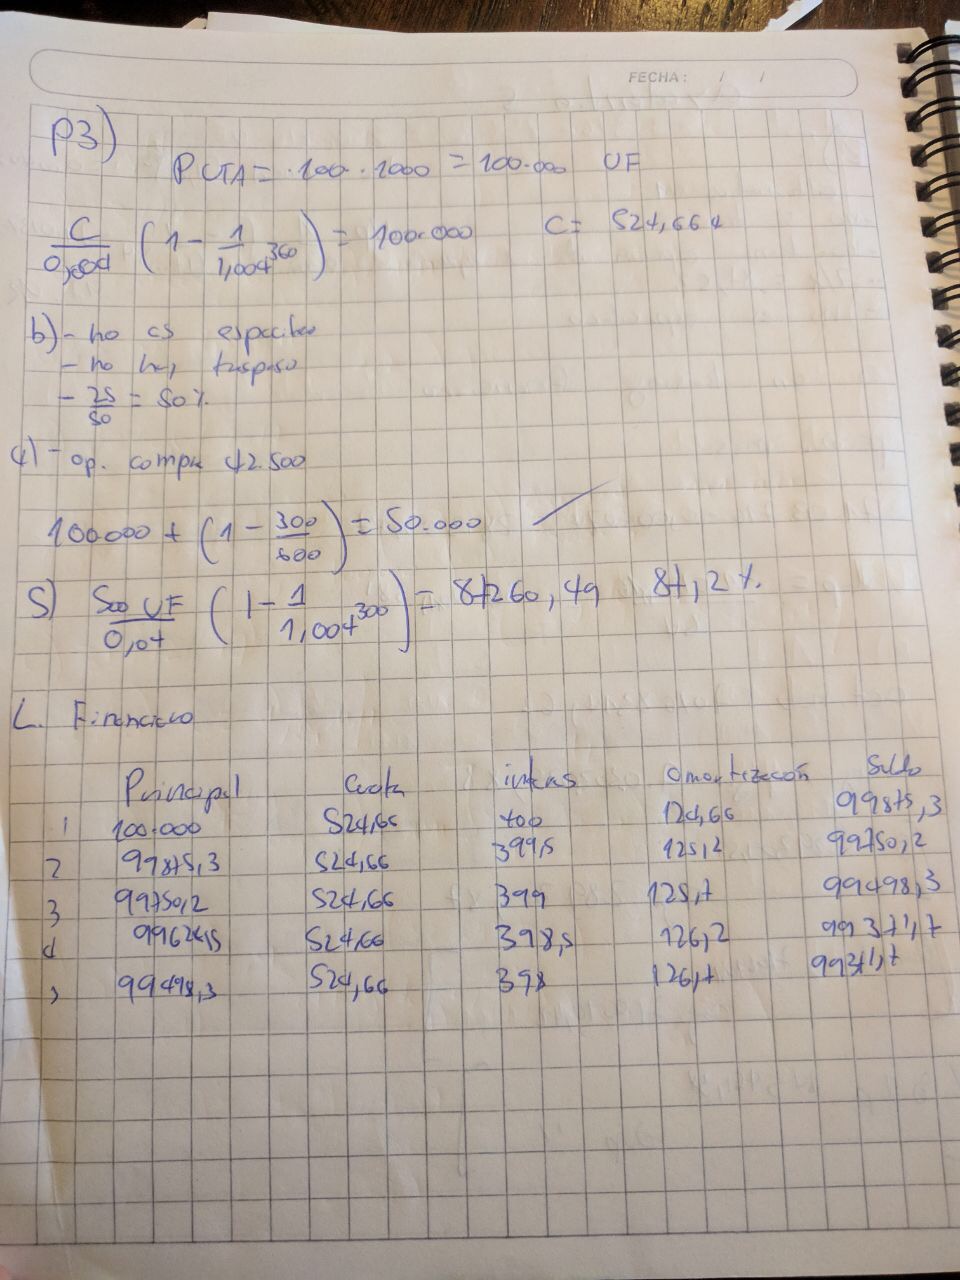 FECHA: / /
P3)
P UTA = 100 · 1000 = 100.000 UF
C/0,004 (1 - 1/1,004^360) = 100.000 C = 524,664
b) - no es
- no hay traspaso
- 25/50 = 50%
4) - op. compra 42.500
100.000 + (1 - 300/600) = 50.000
5) 500 UF/0,04 (1 - 1/1,004^300) = 87260,49 87,2%
L. Financiero
Principal Cuota interes amortización Saldo
1 100.000 524,66 400 124,66 99875,3
2 99875,3 524,66 399,5 125,2 99750,2
3 99750,2 524,66 399 125,7 99498,3
4 99624,5 524,66 398,5 126,2 99371,7
5 99498,3 524,66 398 126,7 99371,7